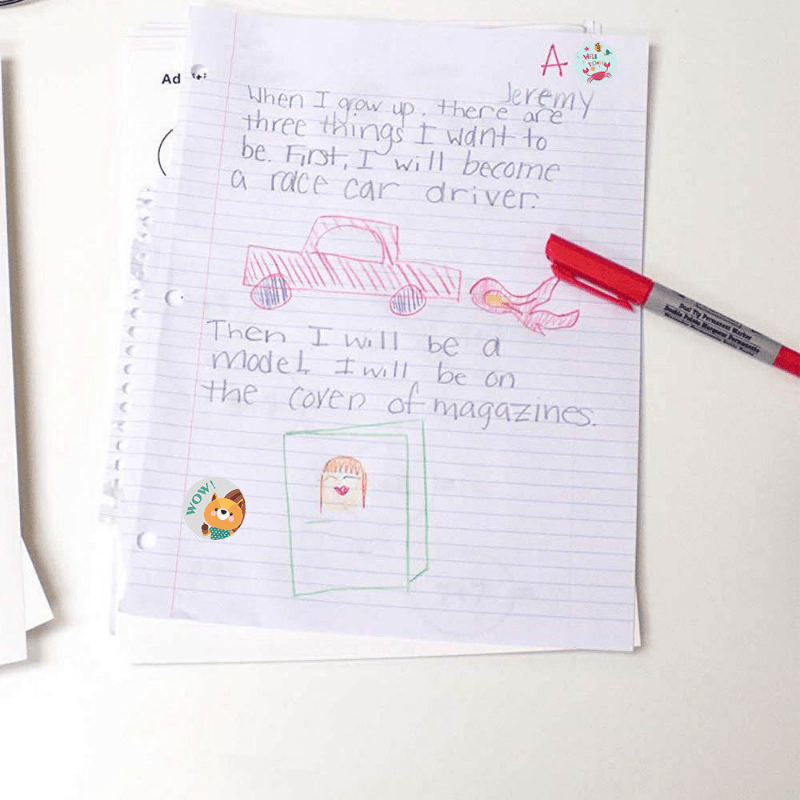 A
Jeremy
Ad
When I grow up, there are
three things I want to
be. First, I will become
a race car driver.
Then I will be a
model. I will be on
the cover of magazines.
WOW!
Dual Tip Permanent Marker